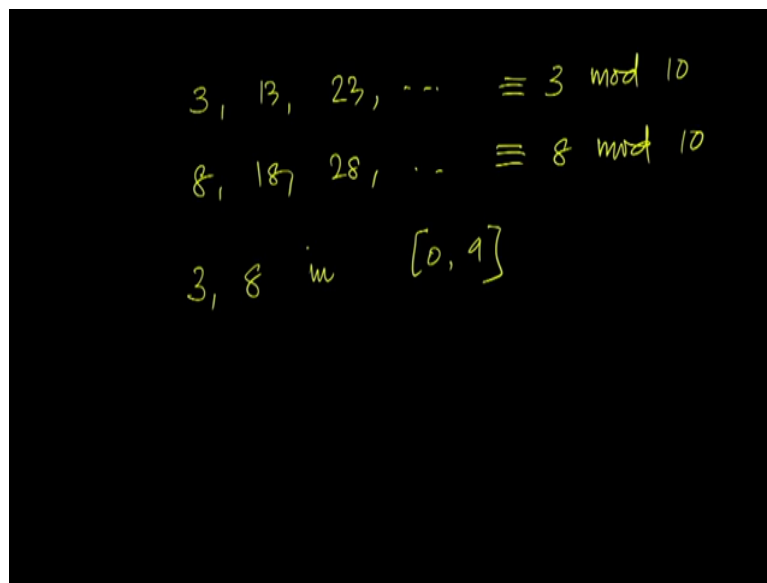 3, 13, 23, ... ≡ 3 mod 10
8, 18, 28, .. ≡ 8 mod 10
3, 8 in [0, 9]